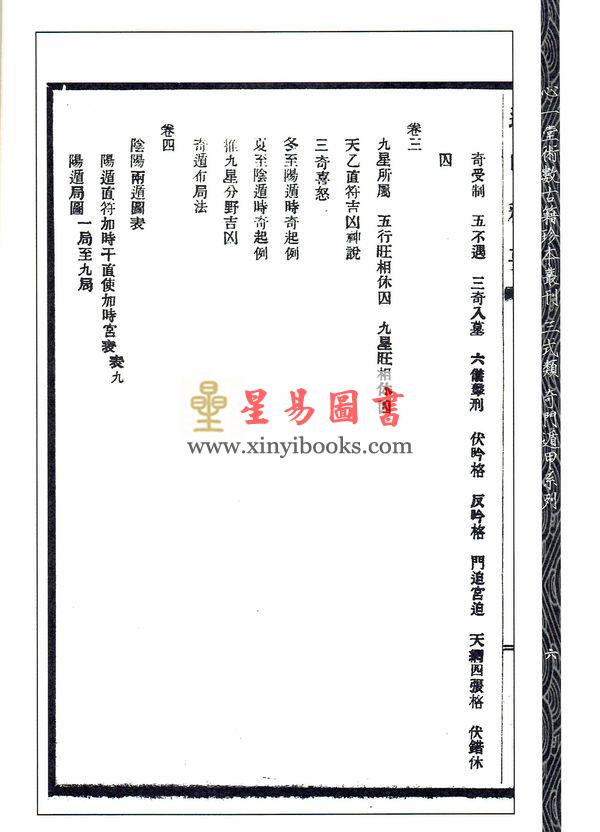 心一堂術數古籍珍本叢刊 三式類 奇門遁甲系列
六
二
奇受制 五不遇 三奇入墓 六儀擊刑 伏吟格 反吟格 門迫宮迫 天網四張格 伏錯休
囚
卷三
九星所屬 五行旺相休囚 九星旺相休囚
天乙直符吉凶神說
三奇喜怒
冬至陽遁時奇起例
夏至陰遁時奇起例
推九星分野吉凶
奇遁布局法
卷四
陰陽兩遁圖表
陽遁直符加時干直使加時宮表 表九
陽遁局圖 一局至九局
星易圖書
www.xinyibooks.com